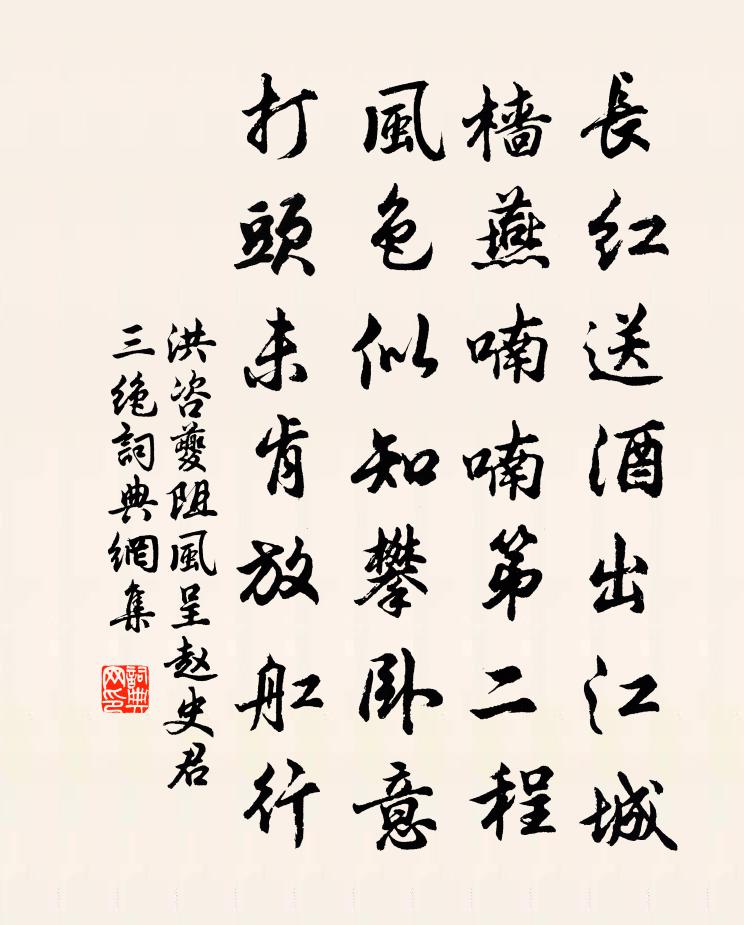 長红送酒出江城
檣燕喃喃第二程
風色似知攀卧意
打頭未肯放舡行
洪咨夔阻風呈赵史君
三绝詞典網集
詞典网印